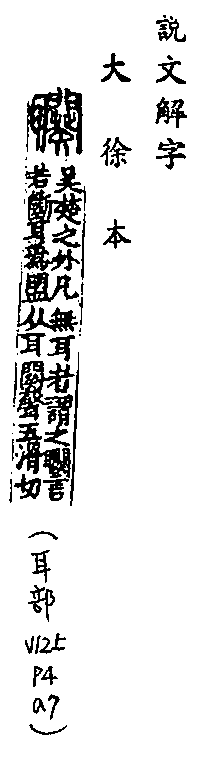 説文解字
大徐本
吳楚之外凡無耳者謂之言
若斷耳爲盟从耳闋聲五滑切
(耳部 V12上 P4 a7)